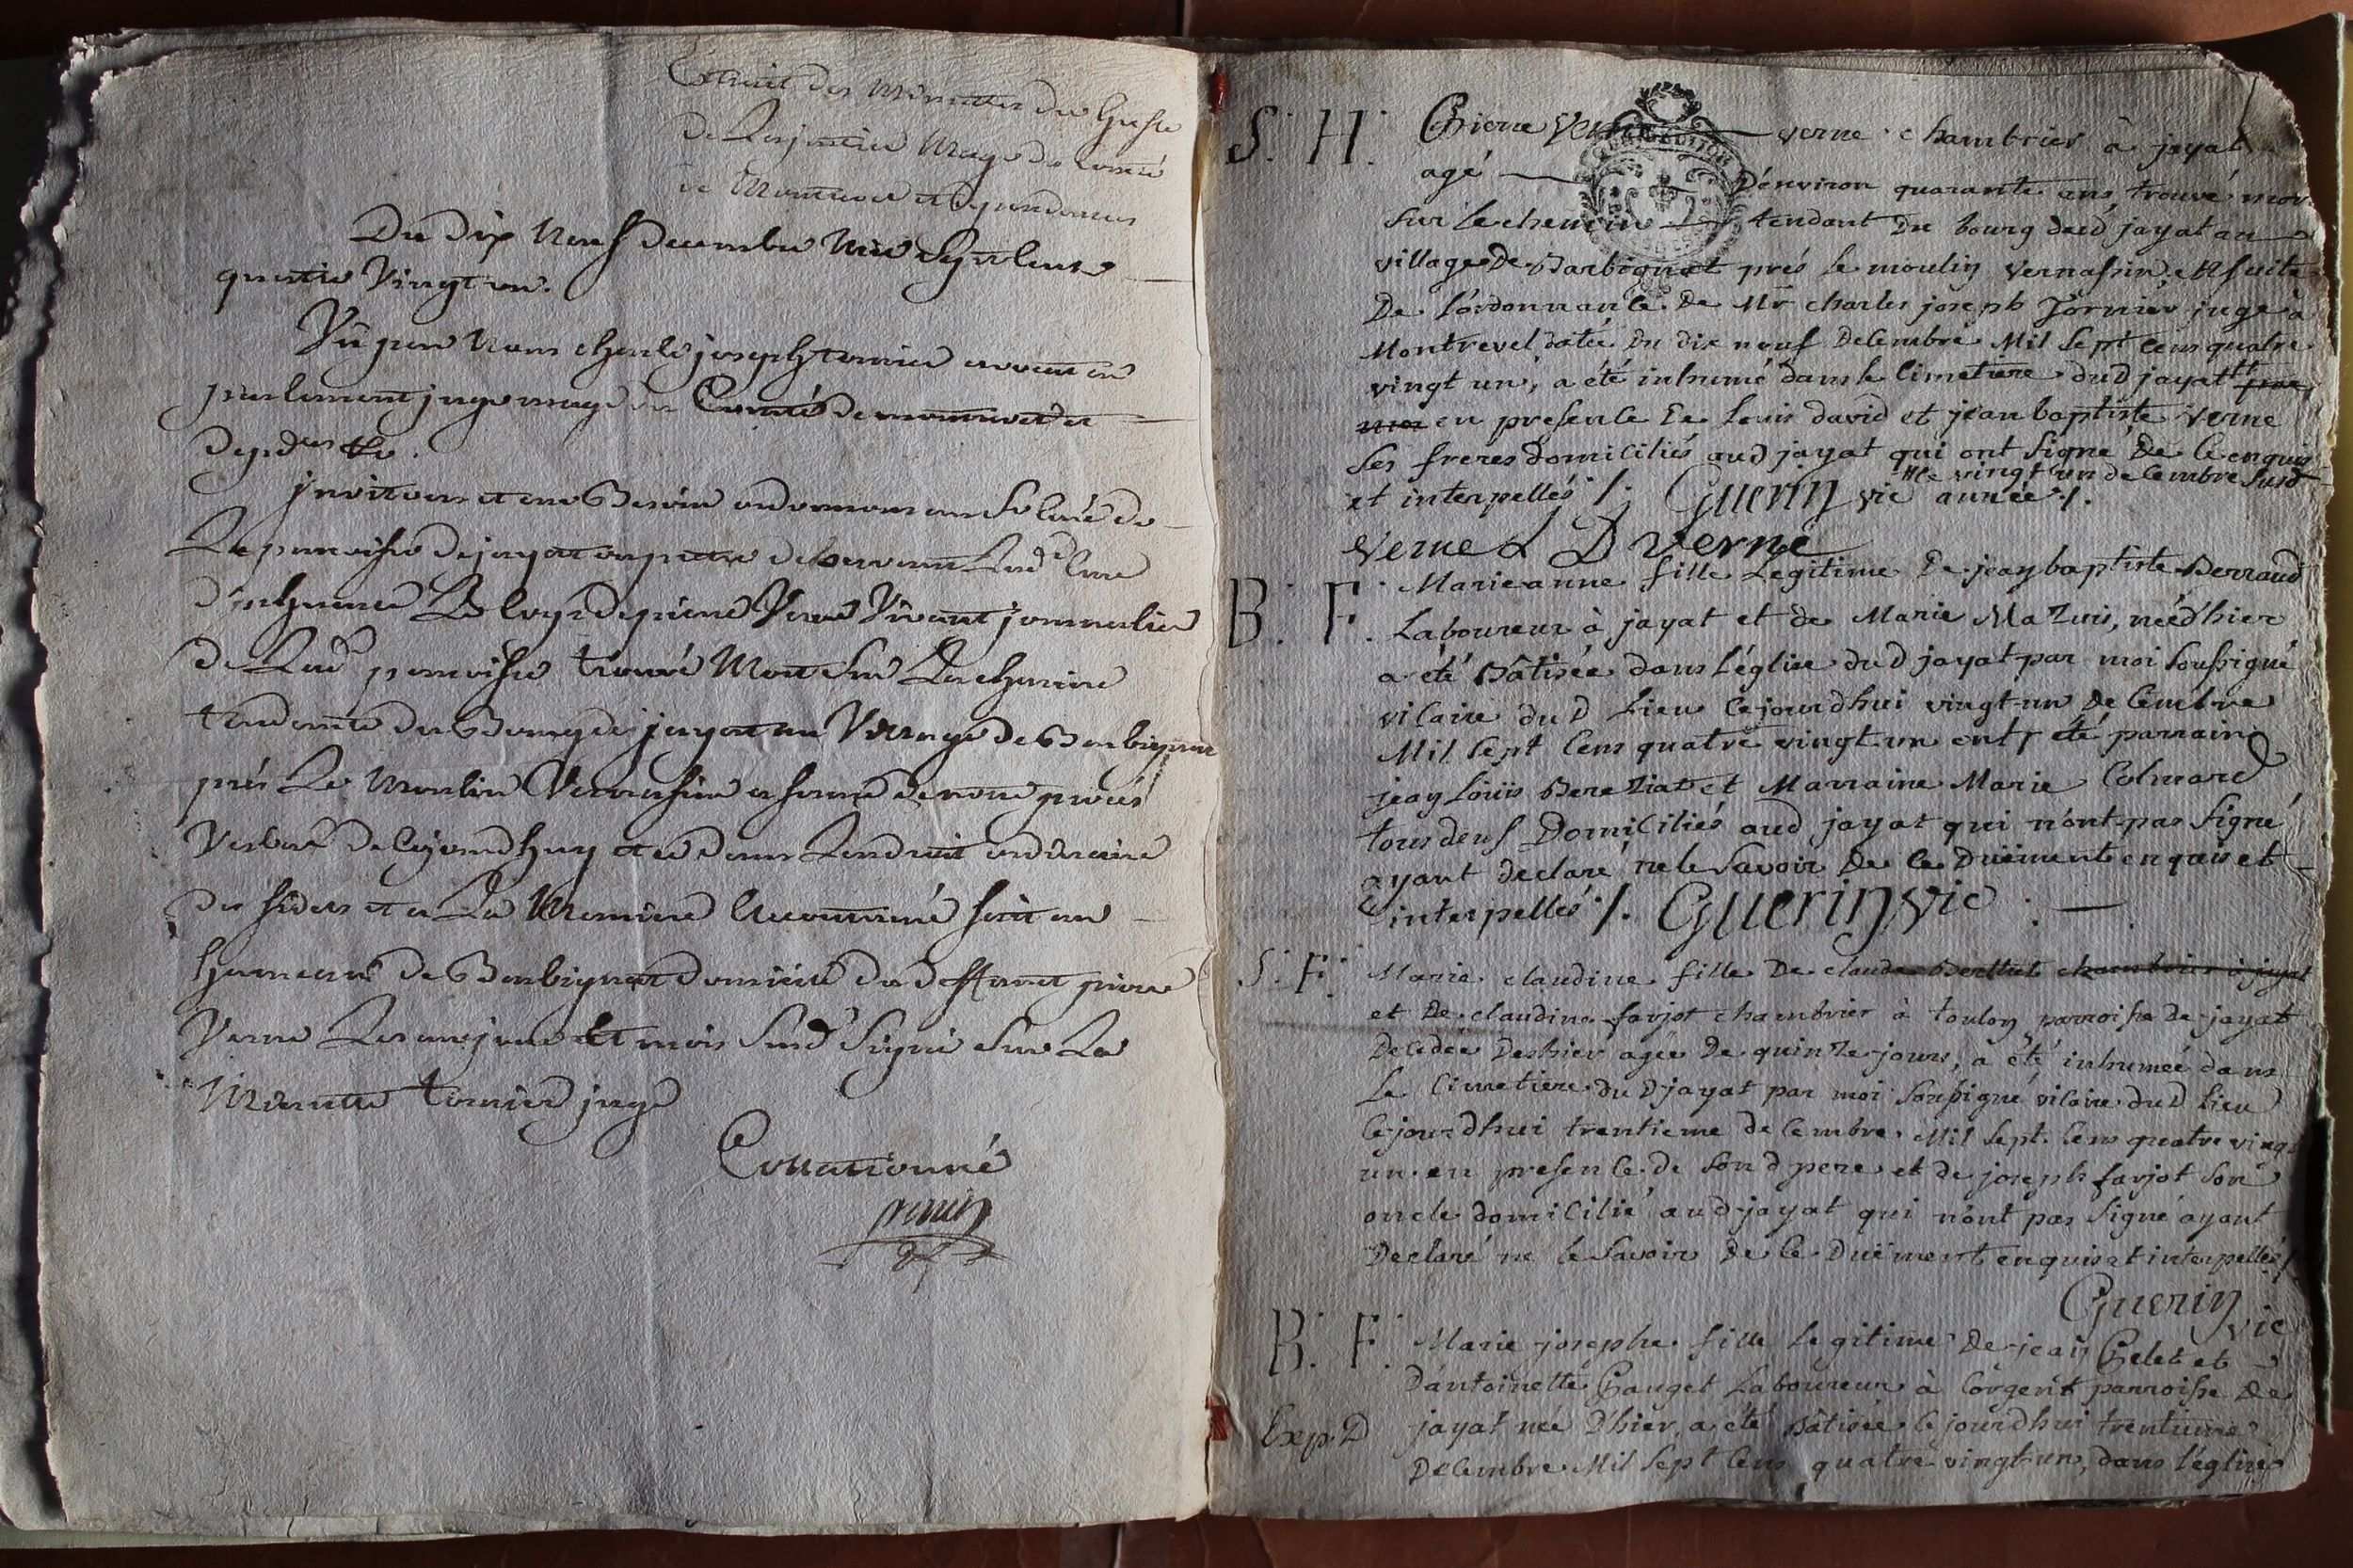 Extrait des Minuttes du Greffe
de La justice Mage du Comté
de Montrevel et dependances
Du dix Neuf decembre Mil Sept Cent
quattre Vingt un.
Vû par Nous charle joseph tornier avocat en
parlement juge mage du Comté de montrevel et
depdces
invitons et en Besoin ordonnons au Sr Curé de
La parroisse de jayat ou pretre deServant Lad Cure
d'inhumer Le Corps de pierre Verne Vivant journalier
de Lad parroisse trouvé Mort Sur Le chemin
tendante du Bourg de jayat au Village de Barbignat
prés Le Moulin Vernassin a forme de notre procés
Verbal de Cejourdhuy et ce dans Lendroit ordinaire
des fideles et a La Maniere accoutumé fait au
hameau de Barbignat domicile dud deffunt pierre
Verne Les an jour et mois Susd Signé Sur La
Minutte tornier juge
Collationné
S. H. Pierre verne chambrier à jayat
agé D'environ quarante ans, trouvé mor
Sur le chemin tendant Du bourg dud jayat au
village De Barbignat prés le moulin vernassin, ensuite
De l'ordonnance De Mr charles joseph Tornier juge à
Montrevel datée Du dix neuf Decembre Mil Sept Cens quatre
vingt un, a été inhumé dans le Cimetiere dud jayat
en presence De Louis david et jean baptiste verne
Ses freres domiciliés aud jayat qui ont signé De Ce enquis
le vingt un decembre susd
et interpellés ./. Guerin vic année ./.
verne L D verne
B. F. Marie anne fille Legitime De jean baptiste Berraud
Laboureur à jayat et de Marie Mazuis, née d'hier
a été Bâtisée dans l'église dud jayat par moi Soussigné
vicaire dud Lieu Cejourdhui vingt-un Decembre
Mil Sept Cens quatre vingt un ont été parrain
jean Loüis Bereziat et Marraine Marie Colmard
tous deux Domiciliés aud jayat qui n'ont pas Signé
ayant declaré ne le Savoir De Ce Duëment enquis et
interpellés ./. Guerin vic
S. F. Marie claudine fille De claude Berthet chambrier à jayat
et De claudine farjot chambrier à toulon parroisse De jayat
Decedée Deshier agée De quinze jours, a été inhumée dans
Le Cimetiere dud jayat par moi Soussigné vicaire dud Lieu
Cejourdhui trentieme decembre Mil Sept Cens quatre ving
un en presence de Son d pere et de joseph farjot Son
oncle domicilié aud jayat qui n'ont pas Signé ayant
Declaré ne le Savoir De Ce Duëment enquis et interpellés ./.
Guerin
vic
B. F. Marie josephe fille Legitime De jean Pelet et
D'antoinette Pauget Laboureur à Corgent parroisse De
Exp. D jayat née D'hier, a été Bâtisée Cejourdhui trentieme
Decembre Mil Sept Cens quatre vingt-un, dans l'église